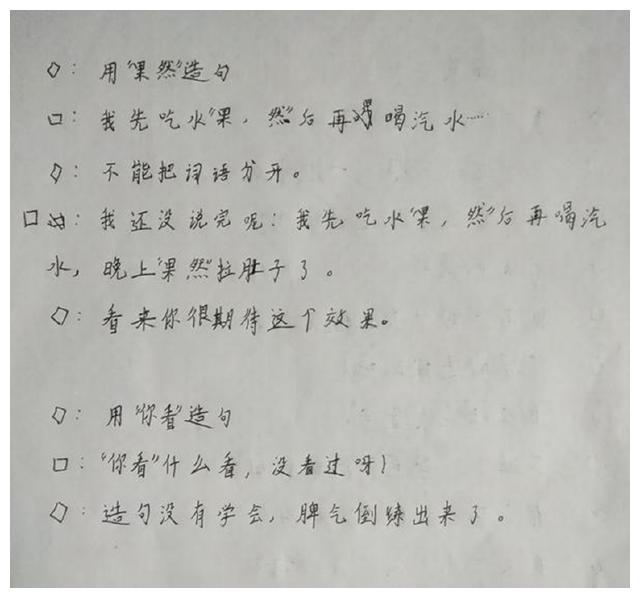 ◇: 用“果然”造句
□: 我先吃水“果, 然”后再喝汽水……
◇: 不能把词语分开。
□: 我还没说完呢: 我先吃水“果, 然”后再喝汽
水, 晚上“果然”拉肚子了。
◇: 看来你很期待这个效果。
◇: 用“你看”造句
□: “你看”什么看, 没看过呀!
◇: 造句没有学会, 脾气倒练出来了。